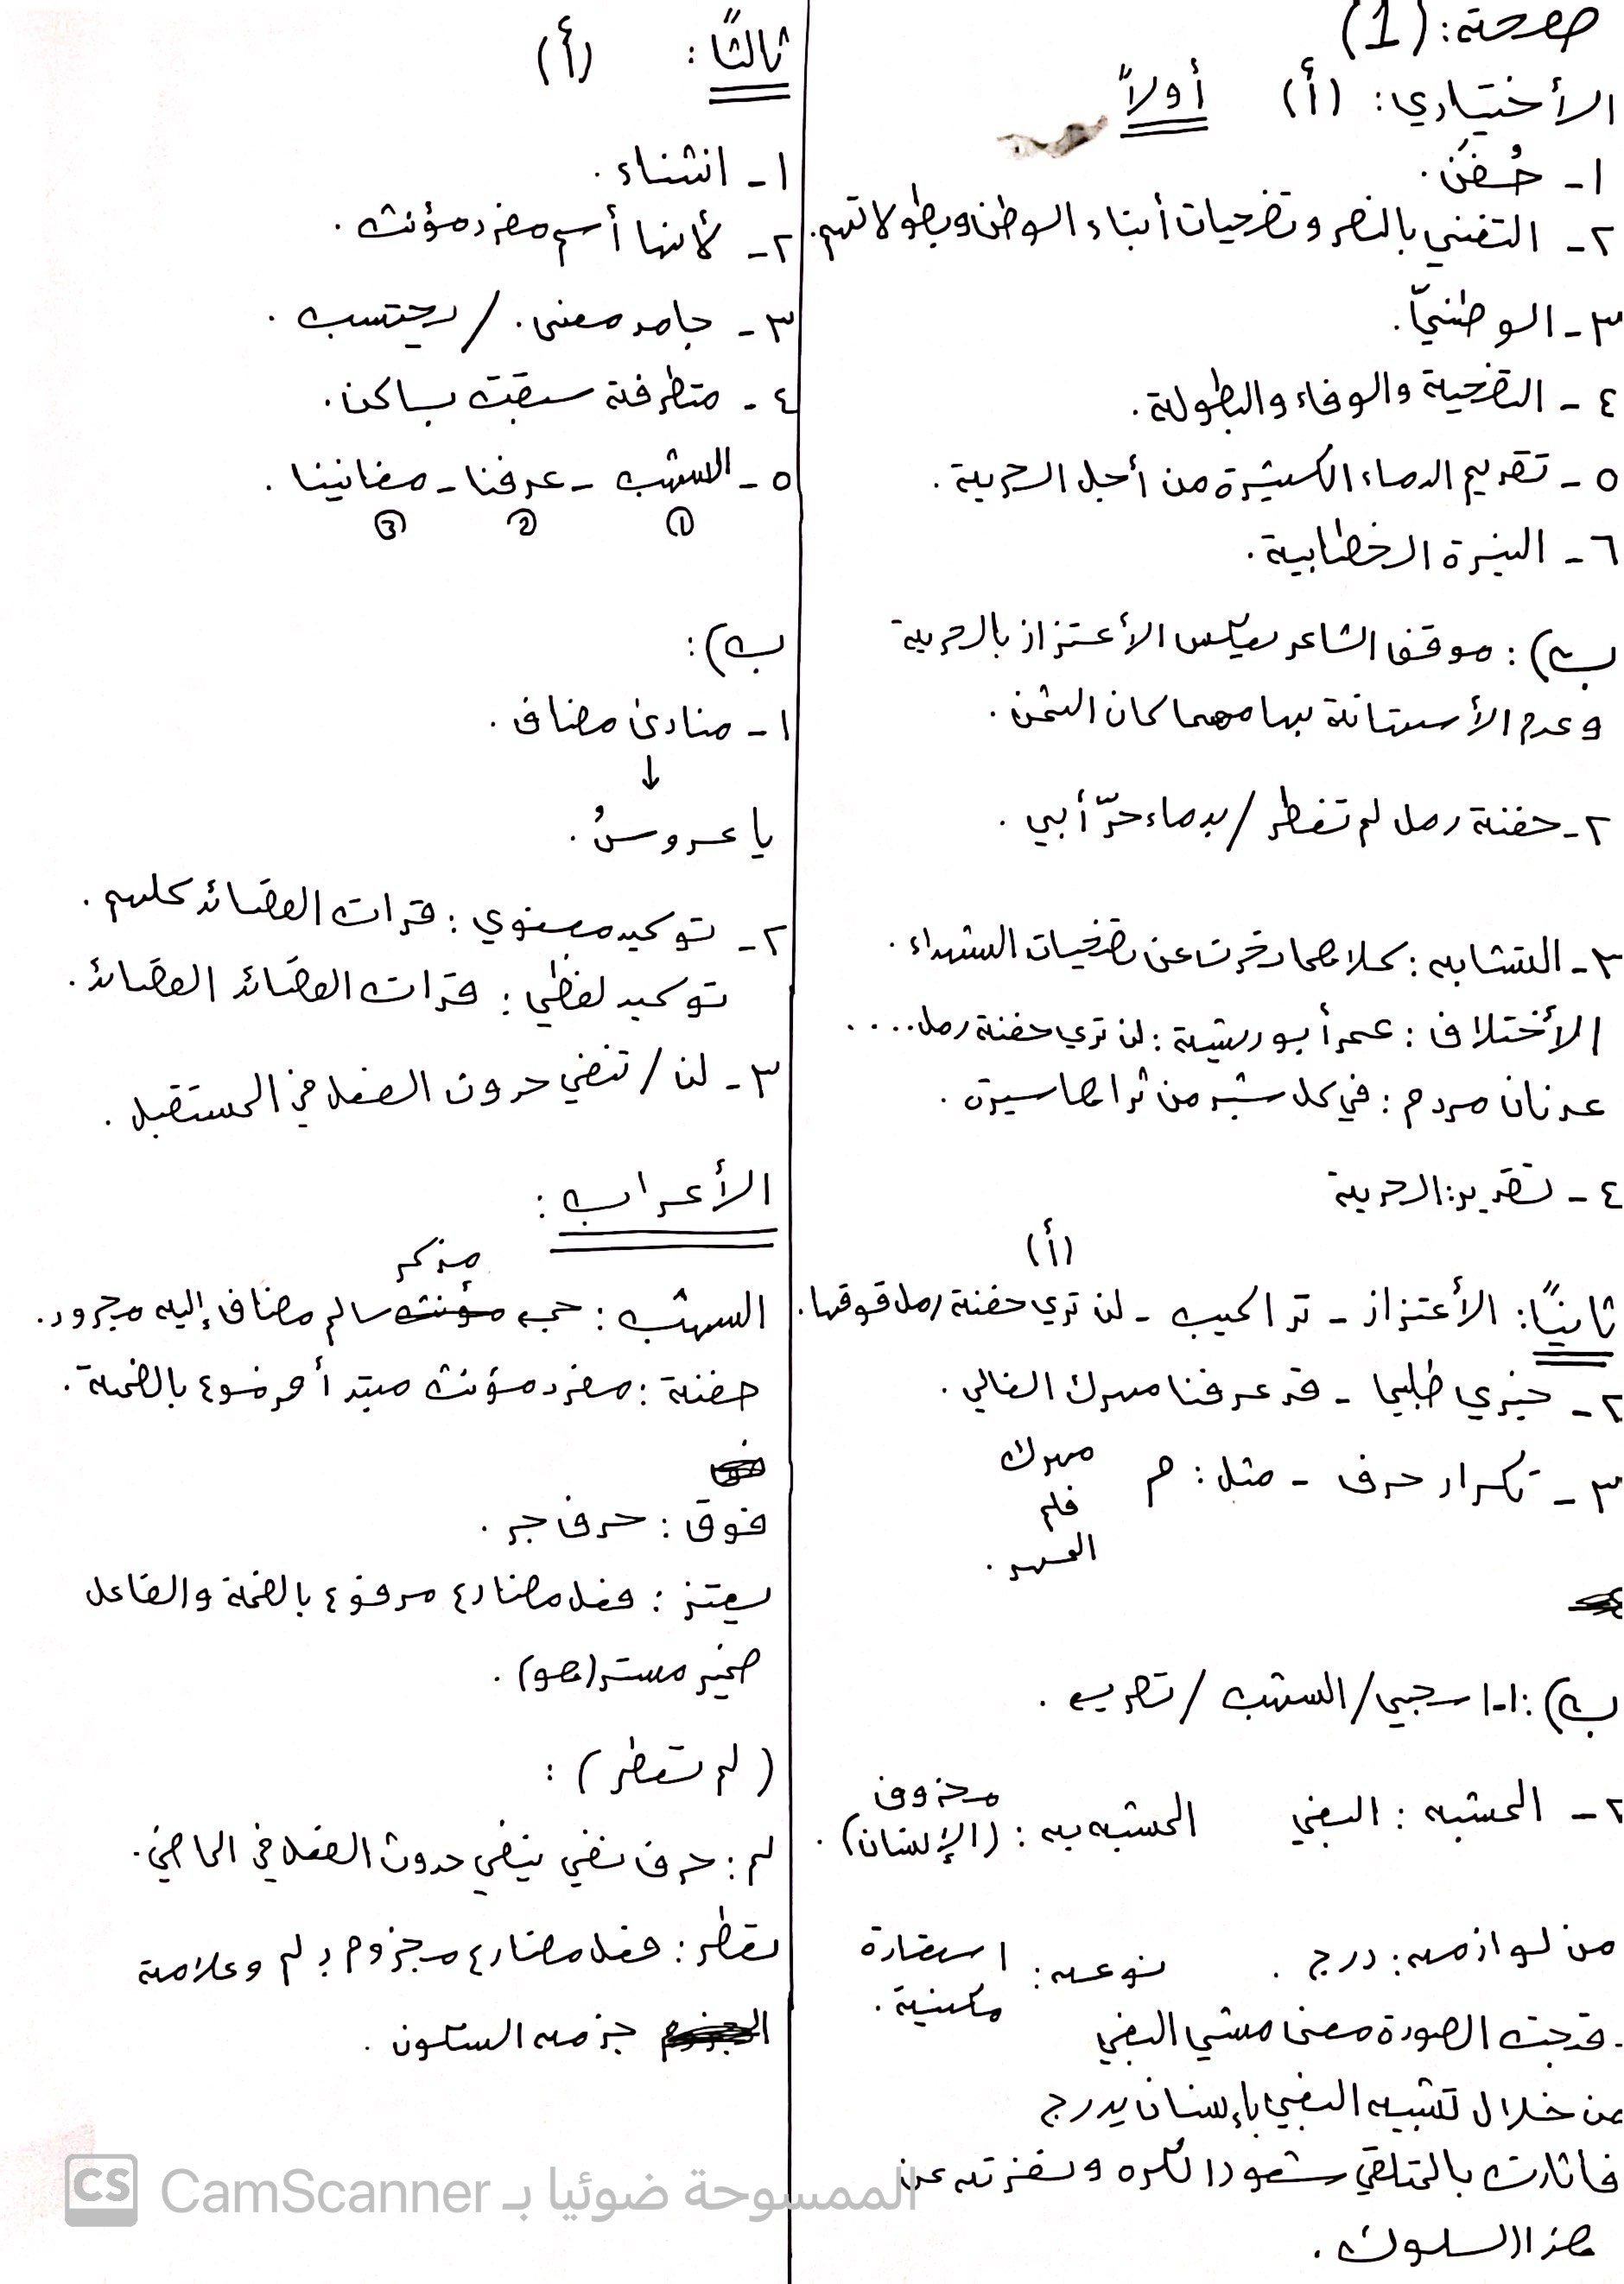 صفحة: (1)
الأختياري: (أ) أولاً
١- حُفَن.
٢- التغني بالنصر وتضحيات أبناء الوطن وبطولاتهم.
٣- الوطنيّ.
٤- التضحية والوفاء والبطولة.
٥- تقديم الدماء الكثيرة من أجل الحرية.
٦- النبرة الخطابية.
ب): موقف الشاعر يعكس الأعتزاز بالحرية
وعدم الأستهانة بها مهما كان الثمن.
٢- حفنة رمل لم تغطر / بدماء حرّ أبي.
٣- التشابه: كلاهما تحدث عن تضحيات الشهداء.
الأختلاف: عمر أبو ريشة: لن تري حفنة رمل....
عدنان مردم: في كل شبر من ثراها سيرة.
٤- تقدير: الحرية
(أ)
ثانيًا: الأعتزاز - تراكيب - لن تري حفنة رمل فوقها.
٢- خبري طلبيا - قد عرفنا مهرك الغالي.
٣- تكرار حرف - مثل: م مهرك
فلم
المهر.
ب): ١- اسحبي / الشهب / تصريع.
٢- المشبه: البغي المشبه به: محذوف
(الإنسان).
من لوازمه: درج. نوعه: استعارة
مكنية.
- قدمت الصورة معنى مشي البغي
من خلال تشبيه البغي بإنسان يدرج
فاثارت بالمتلقي شعور الكره ونفرته عن
هذا السلوك.
ثالثًا: (أ)
١- انشناء.
٢- لأنها أسم مفرد مؤنث.
٣- جامد معنى. / يحتسب.
٤- متطرفة سبقت بساكن.
٥- الشهب - عرفنا - مغانينا.
① ② ③
ب):
١- منادى مضاف.
↓
يا عروسُ.
٢- توكيد معنوي: قرات القصائد كلهم.
توكيد لفظي: قرات القصائد القصائد.
٣- لن / تنفي حدوث الفعل في المستقبل.
الأعراب:
مذكر
الشهب: جمع مؤنث سالم مضاف إليه مجرور.
حفنة: مفرد مؤنث مبتدأ مرفوع بالضمة.
فوق: حرف جر.
يعتز: فعل مضارع مرفوع بالضمة والفاعل
ضمير مستتر (هو).
(لم تعطر):
لم: حرف نفي ينفي حدوث الفعل في الماضي.
تعطر: فعل مضارع مجزوم بـ لم وعلامة
جزمه السكون.
الممسوحة ضوئيا بـ CamScanner
CS